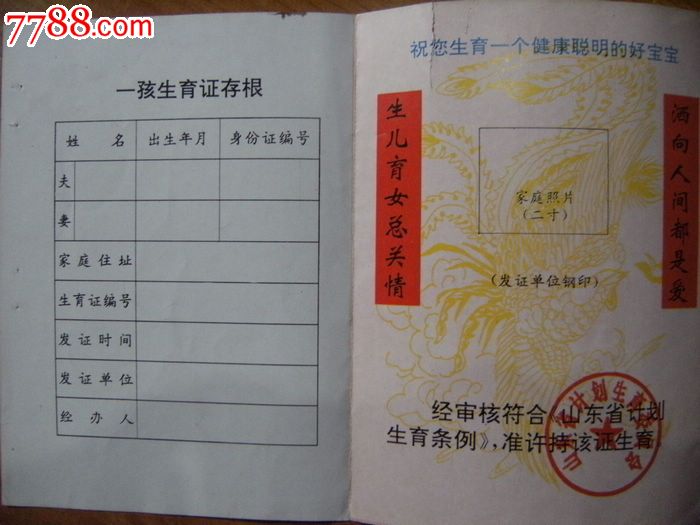 7788.com
一孩生育证存根
姓 名 出生年月 身份证编号
夫
妻
家庭住址
生育证编号
发证时间
发证单位
经办人
祝您生育一个健康聪明的好宝宝
生儿育女总关情
洒向人间都是爱
家庭照片
(二寸)
(发证单位钢印)
经审核符合《山东省计划
生育条例》,准许持该证生育。